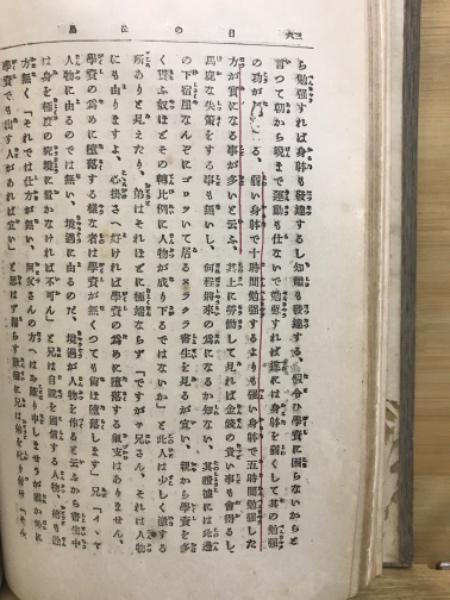 日の出島
ら勉强すれば身躰も發達するし知識も發達する、假令ひ學資に困らないからと
言つて朝から晩まで運動も仕ないで勉强すれば遂には身躰を弱くして其の勉强
の功が る、弱い身躰で十時間勉强するよりも强い身躰で五時間勉强した
方が實になる事が多いと云ふ、其上に勞働して見れば金錢の貴い事も會得るし、
馬鹿な失策をする事も無いし、何程將來の爲になるか知ない、其證據には此邊
の下宿屋なんぞにゴロツいて居るヌラクラ書生を見るが宜い、親から學資を多
く貰ふ奴ほどその轉比例に人物が成り下るではないか」と此人は少しく激する
所ありと見えたり、弟はそれほどに極端ならず「ですがネ兄さん、それは人物
にも由りますよ、心掛さへ好ければ學資の爲めに墮落する氣支はありません、
學資の爲めに墮落する樣な者は學資が無くつても矢張墮落します」兄「イヽヤ
人物に由るのでは無い、境遇に由るのだ、境遇が人物を作ると云ふから書生中
は身を極度の 境に置かなければ不可ん」と兄は自說を固信する人物、弟も
方無く「それでは仕方が無い、阿父さんの方へはお斷り申しませうが誰か外に
學資でも出す人があれば宜い」と